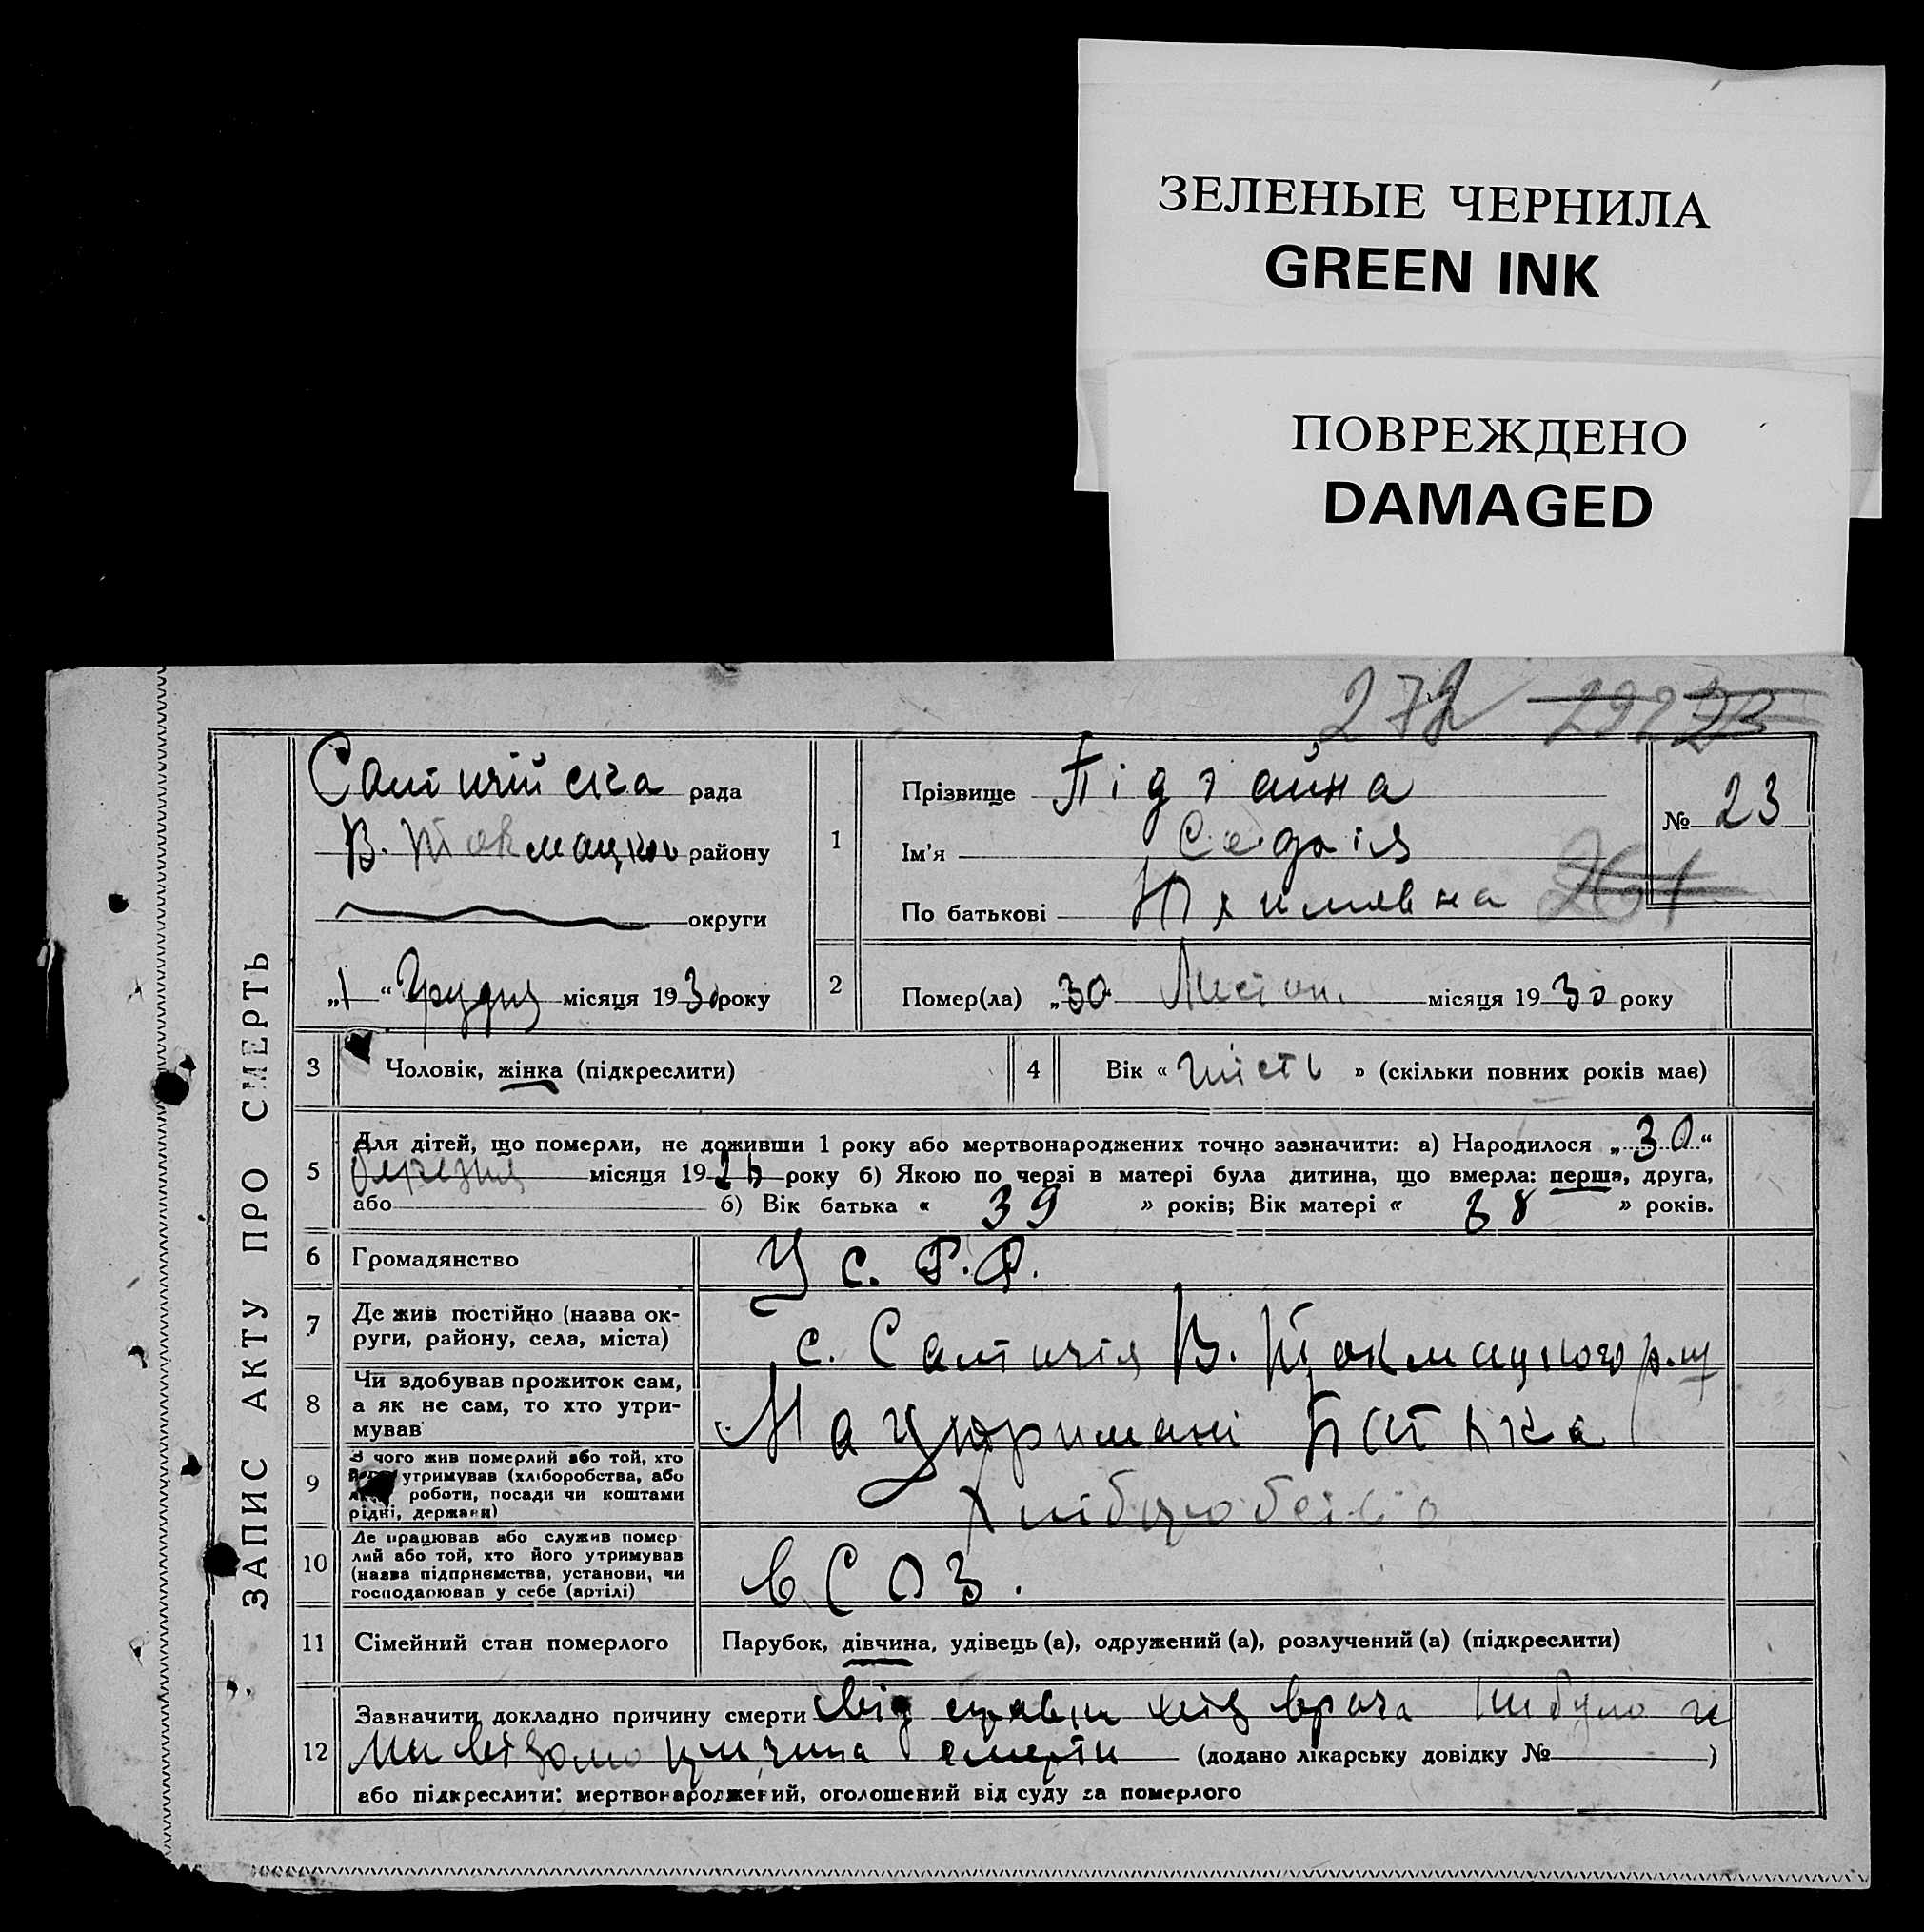 ЗЕЛЕНЫЕ ЧЕРНИЛА
GREEN INK
ПОВРЕЖДЕНО
DAMAGED
272 292 23
ЗАПИС АКТУ ПРО СМЕРТЬ
рада
В. Токмацког району
округи
„1“ Грудня місяця 1930 року
1 Прізвище Підгайна
Ім'я
По батькові Юхимівна
№ 23
261
2 Помер(ла) „30 Листоп. місяця 1930 року
3 Чоловік, жінка (підкреслити)
4 Вік « шість » (скільки повних років має)
5 Для дітей, що померли, не доживши 1 року або мертвонароджених точно зазначити: а) Народилося „30“
березня місяця 192 року б) Якою по черзі в матері була дитина, що вмерла: перша, друга,
або б) Вік батька « 39 » років; Вік матері « 38 » років.
6 Громадянство У С. Р. Р.
7 Де жив постійно (назва ок-
руги, району, села, міста)
с. В. Токмацького р-ну
8 Чи здобував прожиток сам,
а як не сам, то хто утри-
мував
На утримані батька
9 З чого жив померлий або той, хто
утримував (хліборобства, або
роботи, посади чи коштами
рідні, держави)
Хліборобство
10 Де працював або служив помер
лий або той, хто його утримував
(назва підприємства, установи, чи
господарював у себе (артілі)
в СОЗ.
11 Сімейний стан померлого Парубок, дівчина, удівець (а), одружений (а), розлучений (а) (підкреслити)
12 Зазначити докладно причину смерти від врача небуло и
ни відомо причина смерти (додано лікарську довідку № )
або підкреслити: мертвонароджений, оголошений від суду за померлого